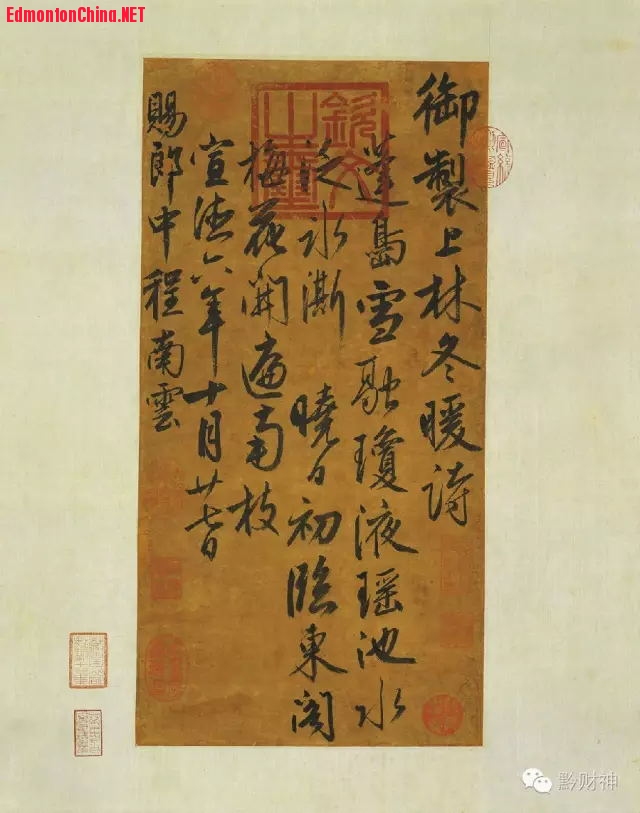 EdmontonChina.NET
御製上林冬暖詩
蓬島雪融瓊液瑶池水
冰澌 曉日初臨東閣
梅花開遍南枝
宣德六年十月廿七日
賜郎中程南雲
欽文之璽
黔财神